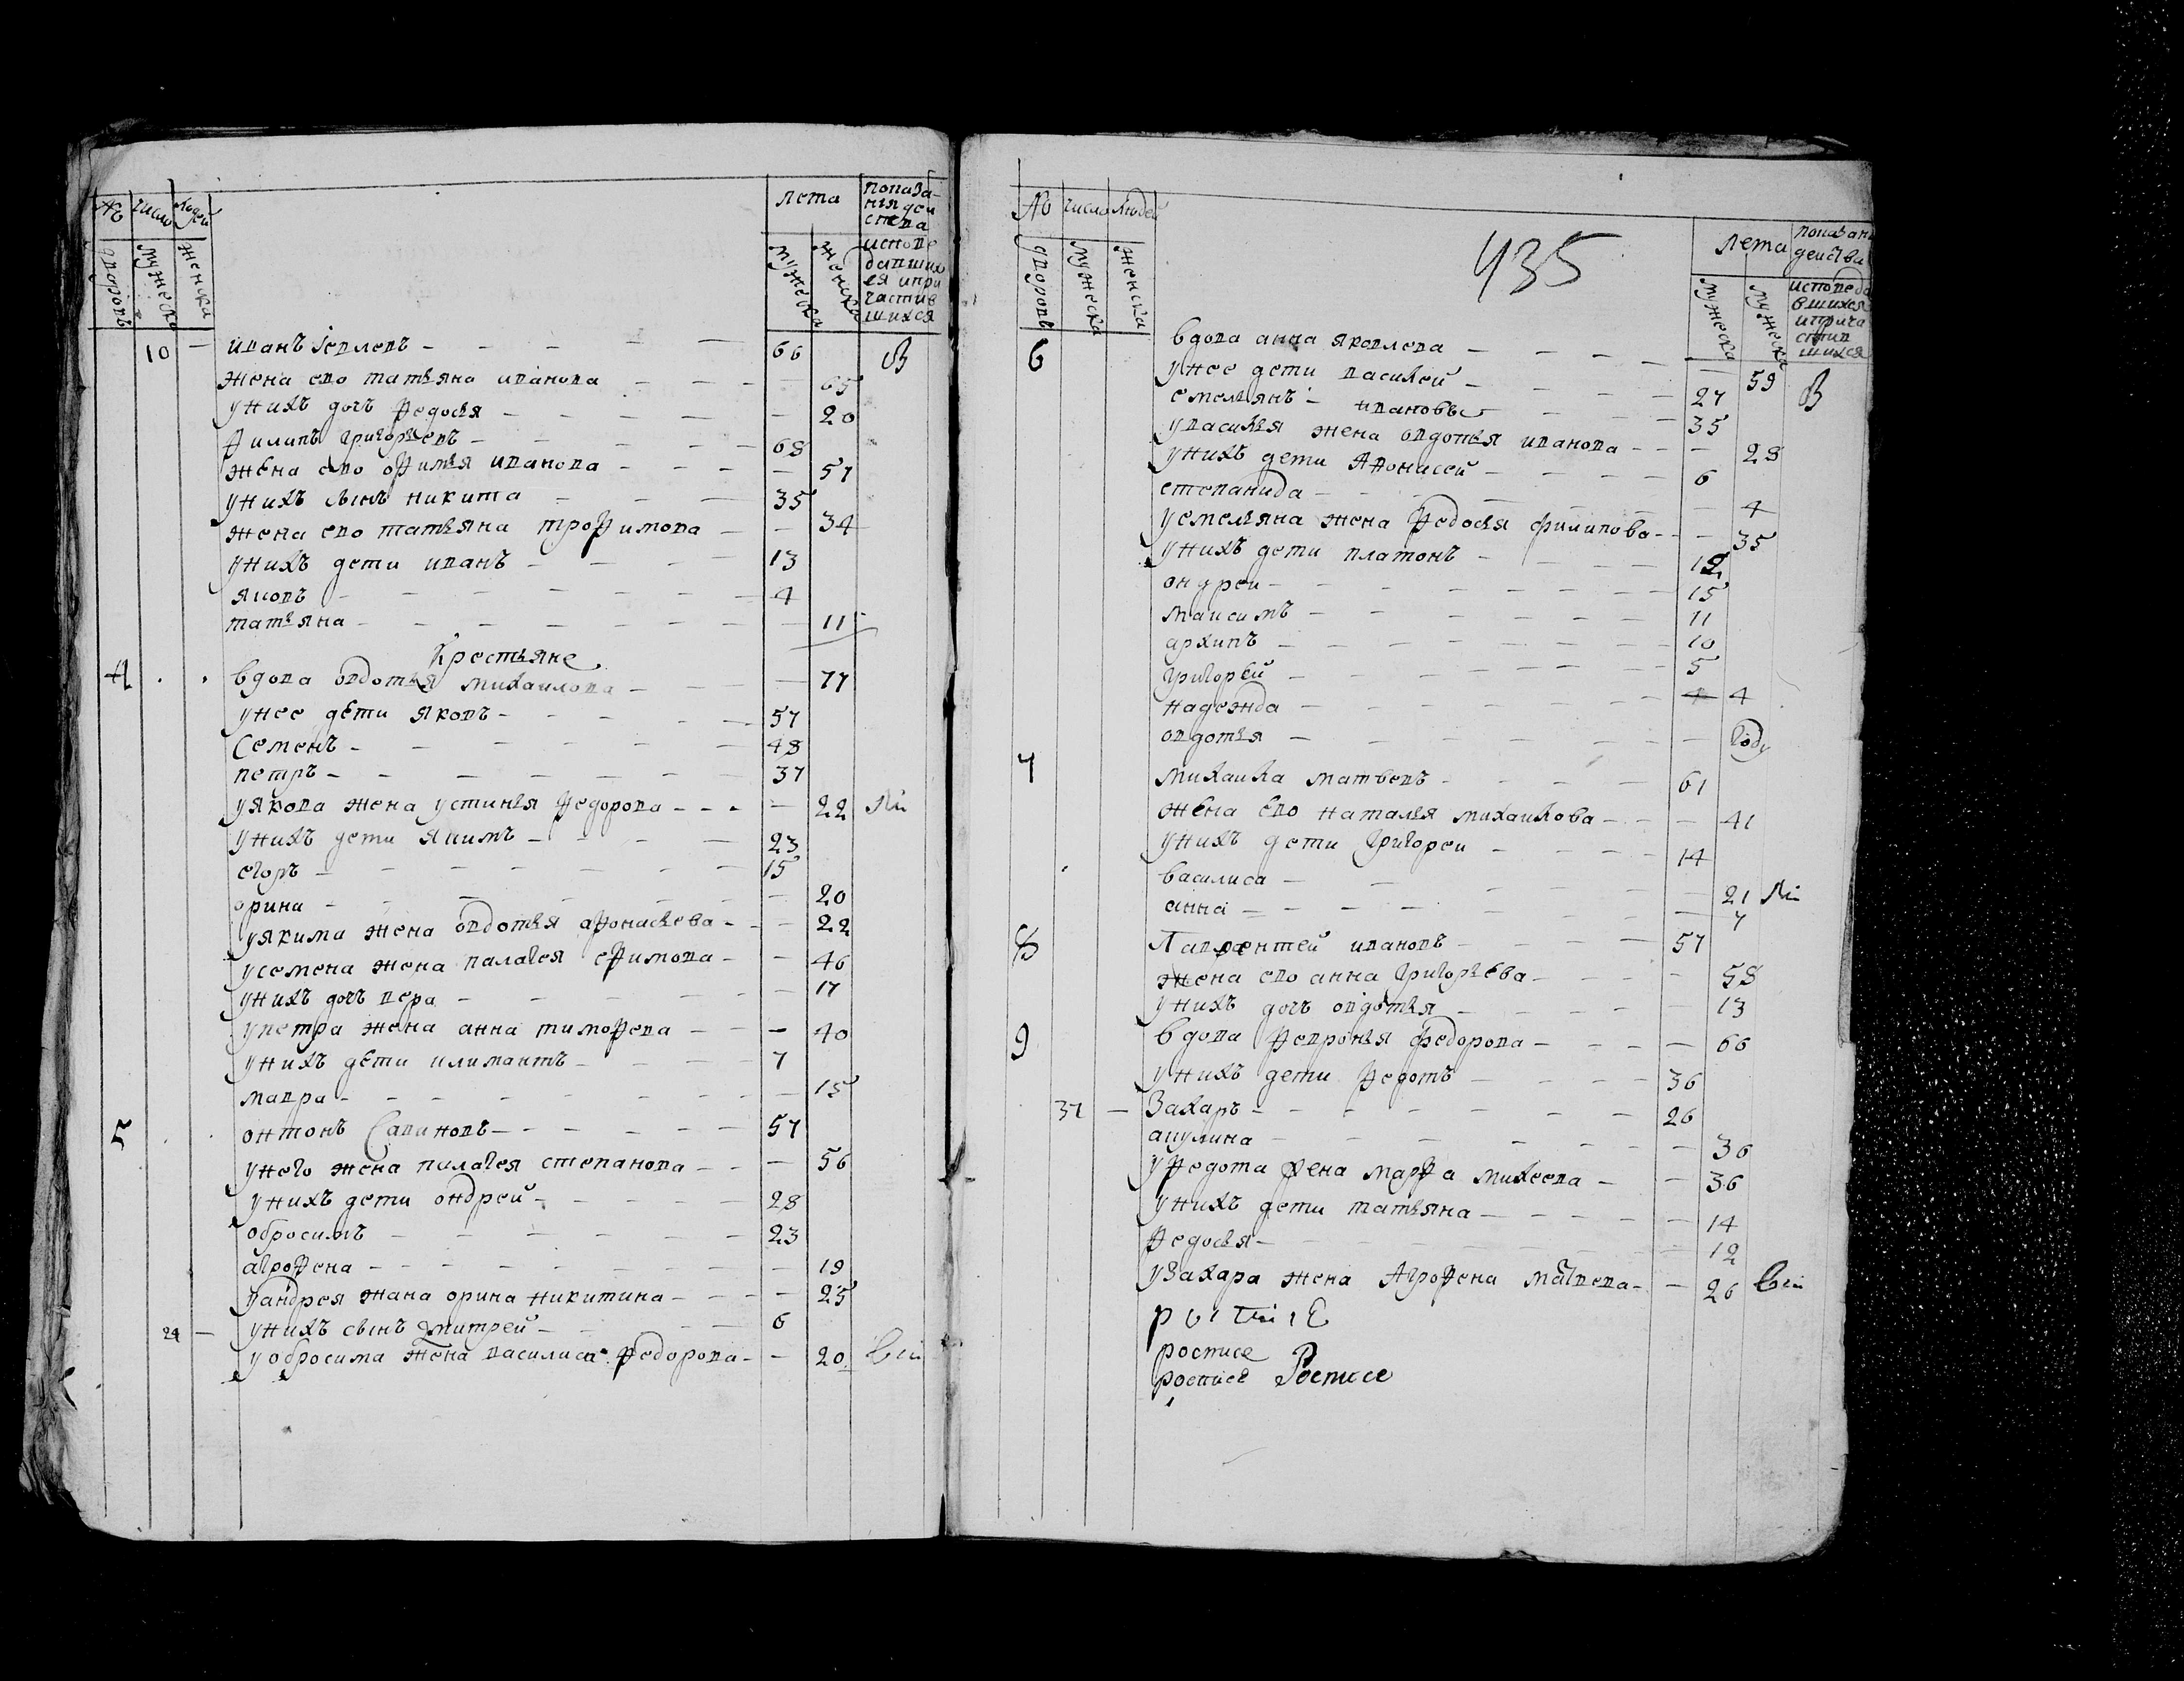 № число людей
дворовъ мужеска женска
лета
мужеска женска
показа-
ния дей
ства
испове
давших
ся и при
частив
шихся
10 — иванъ иевлевъ — 66 В
жена ево татьяна иванова — 65
у нихъ дочь федосья — 20
филипъ григорьевъ — 68
жена ево офимья иванова — 57
у нихъ сынъ никита — 35
жена ево татьяна трофимова — 34
у нихъ дети иванъ — 13
яковъ — 4
татьяна — 11
Крестьяне
4 вдова овдотья михаилова — 77
у нее дети яковъ — 57
Семенъ — 48
петръ — 37
у якова жена устинья федорова — 22
у нихъ дети якимъ — 23
егоръ — 15
орина — 20
у якима жена овдотья афонасьева — 22
у семена жена палагея ефимова — 46
у нихъ дочь вера — 17
у петра жена анна тимофева — 40
у нихъ дети климантъ — 7
мавра — 15
5 онтонъ Савиновъ — 57
у него жена пилагея степанова — 56
у нихъ дети ондрей — 28
обросимъ — 23
агрофена — 19
у андрея жана орина никитина — 25
29 — у нихъ сынъ дмитрей — 6
у обросима жена василиса федорова — 20
№ число людей
дворовъ мужеска женска
435
лета
мужеска мужеска
показан
действа
исповеда
вшихся
и прича
стив
шихся
6 вдова анна яковлева — 59 В
у нее дети василей — 27
емельянъ — ивановы — 35
у василья жена овдотья иванова — 28
у нихъ дети Афонасей — 6
степанида — 4
у емельяна жена федосья филипова — 35
у нихъ дети платонъ — 12
ондреи — 15
максимъ — 11
архипъ — 10
григорьей — 5
надежда — 4 4
овдотья — году
7 михаила матвевъ — 61
жена ево наталья михаилова — 41
у нихъ дети григореи — 14
василиса — 21
анна — 7
8 Лаврентей ивановъ — 57
жена ево анна григорьева — 58
у нихъ дочь овдотья — 13
9 вдова февронья федорова — 66
у нихъ дети федотъ — 36
37 — Захаръ — 26
акулина — 36
у федота жена марфа михеева — 36
у нихъ дети татьяна — 14
федосья — 12
у Захара жена Агрофена матвева — 26
росписе
росписе Росписе